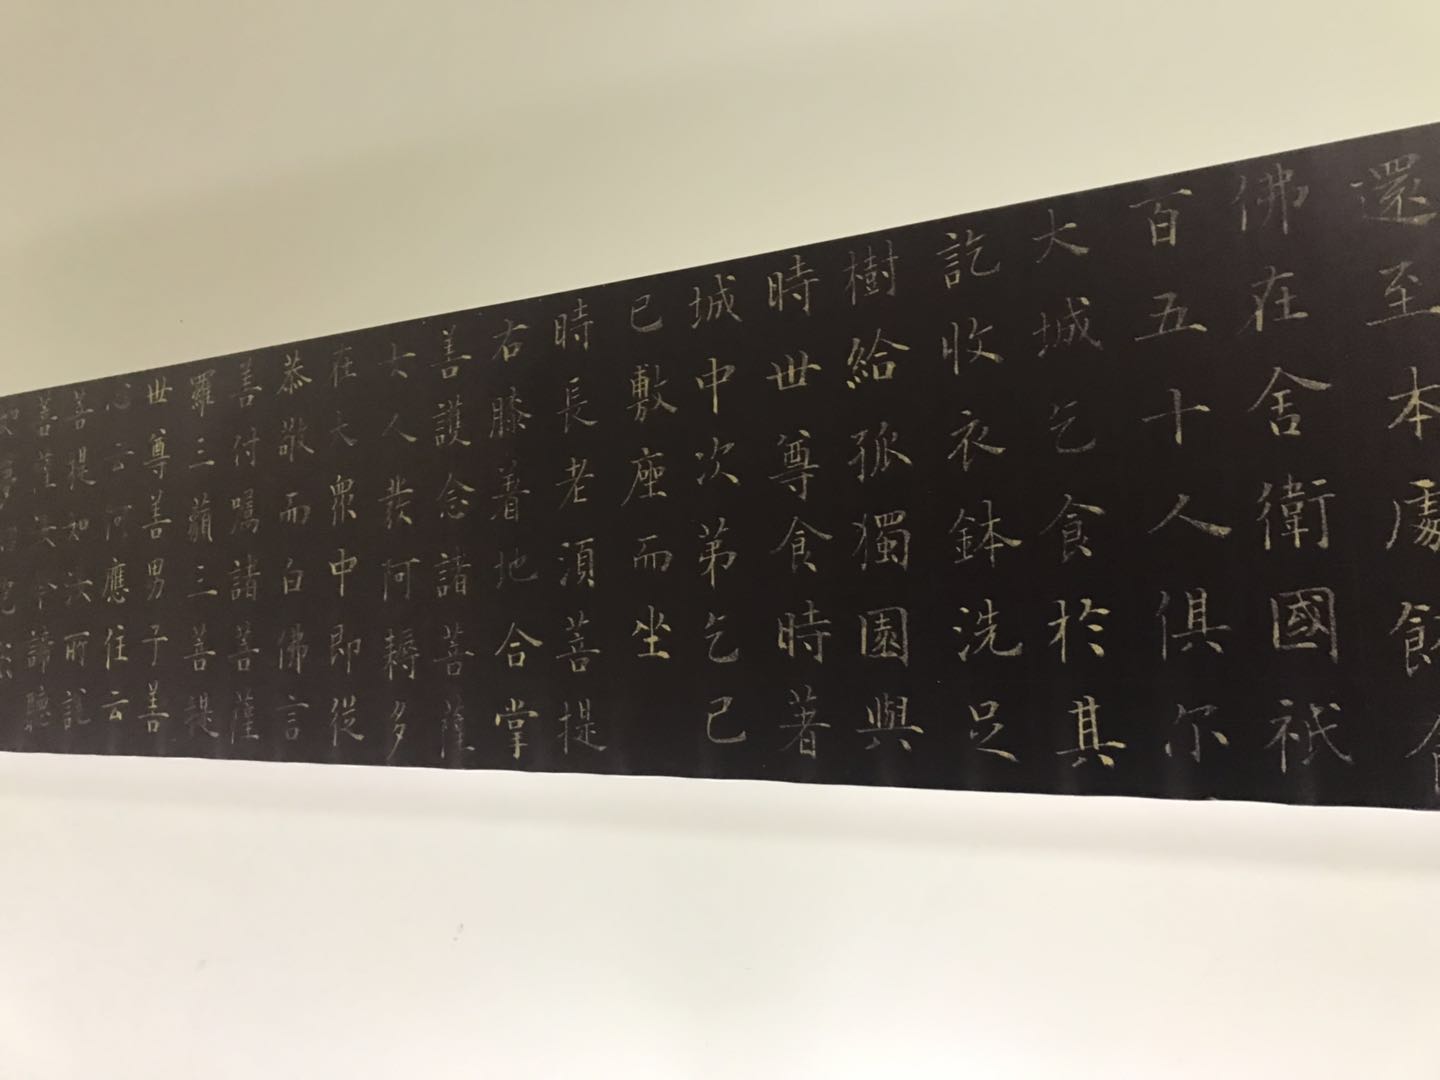 還至本處飯食
佛在舍衛國祇
百五十人俱尔
大城乞食於其
訖收衣鉢洗足
樹給孤獨園與
時世尊食時著
城中次第乞已
已敷座而坐
時長老湏菩提
右膝着地合掌
善護念諸菩薩
大人發阿耨多
在大衆中即從
恭敬而白佛言
善付嘱諸菩薩
羅三藐三菩提
世尊善男子善
心云何應住云
菩提如汝所說
菩薩汝今諦聽